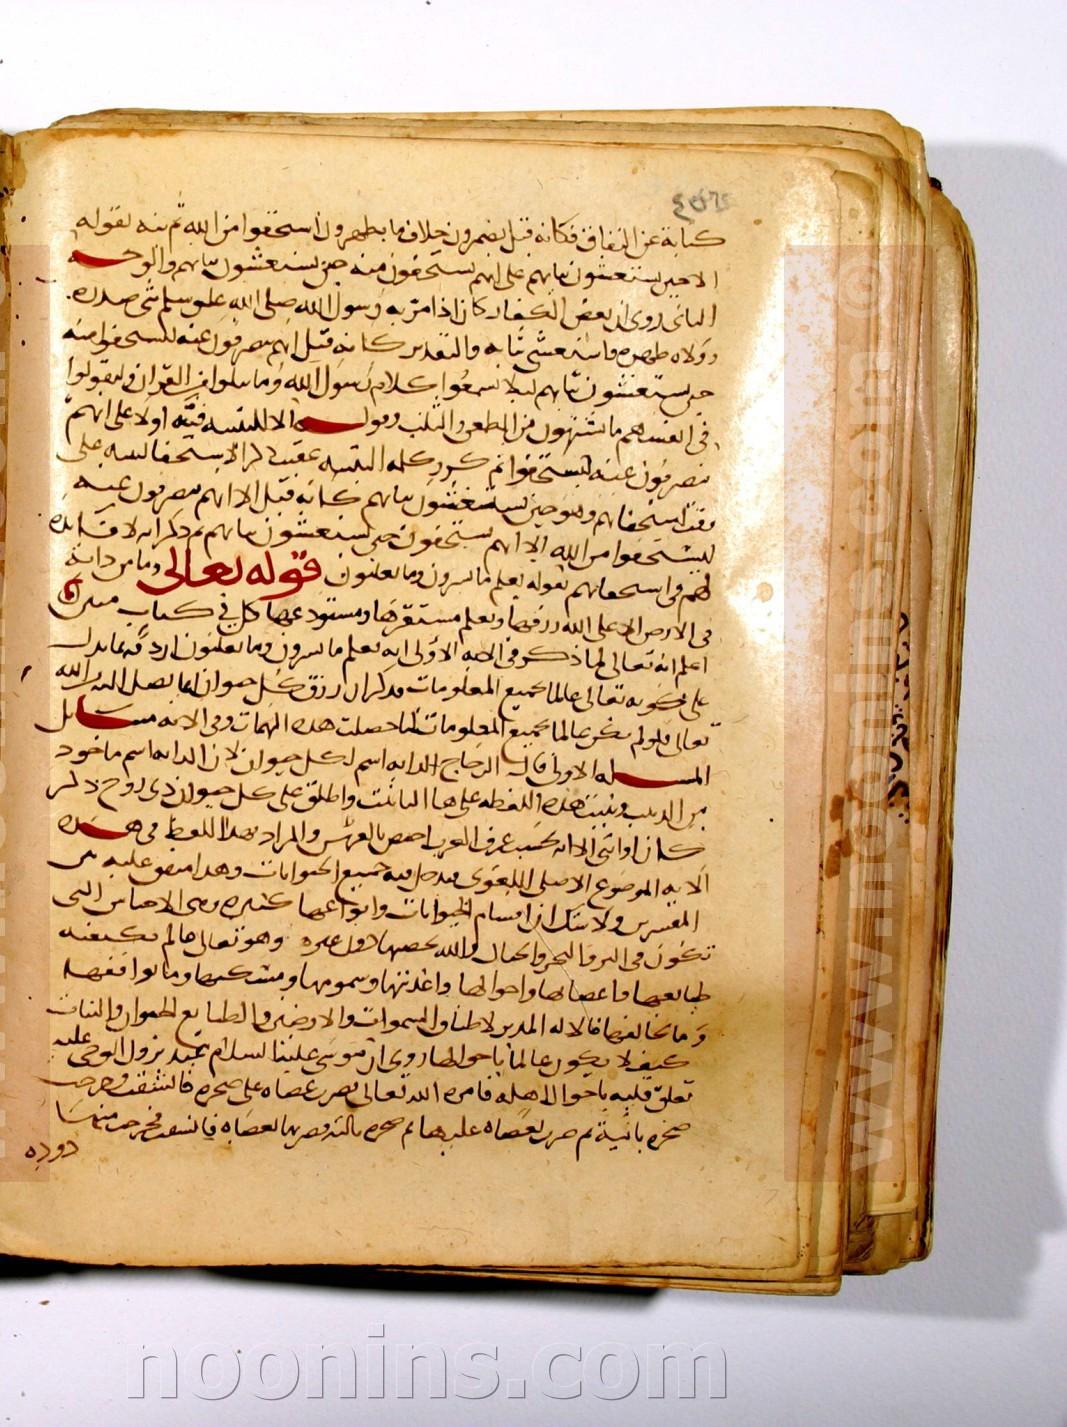 كناية عن النفاق فكانه قيل يضمرون خلاف ما يظهرون ليستخفوا من الله ثم نبه بقوله
الا حين يستغشون ثيابهم على انهم يستخفون منه حين يستغشون ثيابهم والوجه
الثاني روي ان بعض الكفار كان اذا مر به رسول الله صلى الله عليه وسلم ثنى صدره
وولاه ظهره واستغشى ثيابه والتقدير كانه قيل انهم ينصرفون عنه ليستخفوا منه
حين يستغشون ثيابهم ليلا يسمعوا كلام رسول الله وما يتلوا من القران وليقولوا
في انفسهم ما يشتهون من الطعن والثلب وقوله الا للتنبيه فنبه اولا على انهم
ينصرفون عنه ليستخفوا ثم كرر كلمة التنبيه عقيب ذكر الاستخفا لينبه على
وقت استخفائهم وهو حين يستغشون ثيابهم كانه قيل الا انهم ينصرفون عنه
ليستخفوا من الله الا انهم يستخفون حين يستغشون ثيابهم ثم ذكر انه لا فائدة
لهم في استخفائهم بقوله يعلم ما يسرون وما يعلنون قوله تعالى وما من دابة
في الارض الا على الله رزقها ويعلم مستقرها ومستودعها كل في كتاب مبين
اعلم انه تعالى لما ذكر في الاية الاولى انه يعلم ما يسرون وما يعلنون اردفه بما يدل
على كونه تعالى عالما بجميع المعلومات فذكر ان رزق كل حيوان انما يصل اليه من الله
تعالى فلو لم يكن عالما بجميع المعلومات لما حصلت هذه المهمات وفي الاية مسائل
المسئلة الاولى قال الزجاج الدابة اسم لكل حيوان لان الدابة اسم ماخوذ
من الدبيب وبنيت هذه اللفظة على هاء التانيث واطلق على كل حيوان ذي روح ذكر
كان او انثى الا انه بحسب عرف العرب اختص بالفرس والمراد بهذا اللفظ في هذه
الاية الموضوع الاصلي اللغوي فيدخل فيه جميع الحيوانات وهذا متفق عليه بين
المفسرين ولا شك ان اقسام الحيوانات وانواعها كثيرة وهي الاجناس التي
تكون في البر والبحر والجبال والله يحصيها دون غيره وهو تعالى عالم بكيفية
طبايعها واعضائها واحوالها واغذيتها وسمومها ومسكنها وما يوافقها
وما يخالفها فالاله المدبر لاطباق السموات والارضين والطبايع الحيوان والنبات
كيف لا يكون عالما باحوالها روي ان موسى عليه السلام عند نزول الوحي عليه
تعلق قلبه باحوال اهله فامره الله تعالى بضرب عصاه على صخرة فانشقت وخرجت
صخرة ثانية ثم ضرب بعصاه عليها ثم صخرة ثالثة فضربها بعصاه فانشقت فخرجت منها
دودة
noonins.com